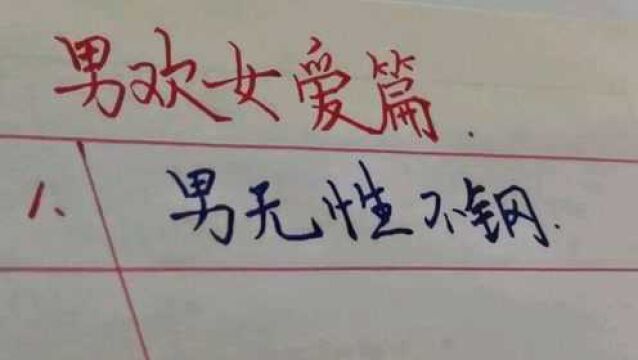 男欢女爱篇.
1、男无性不钢.